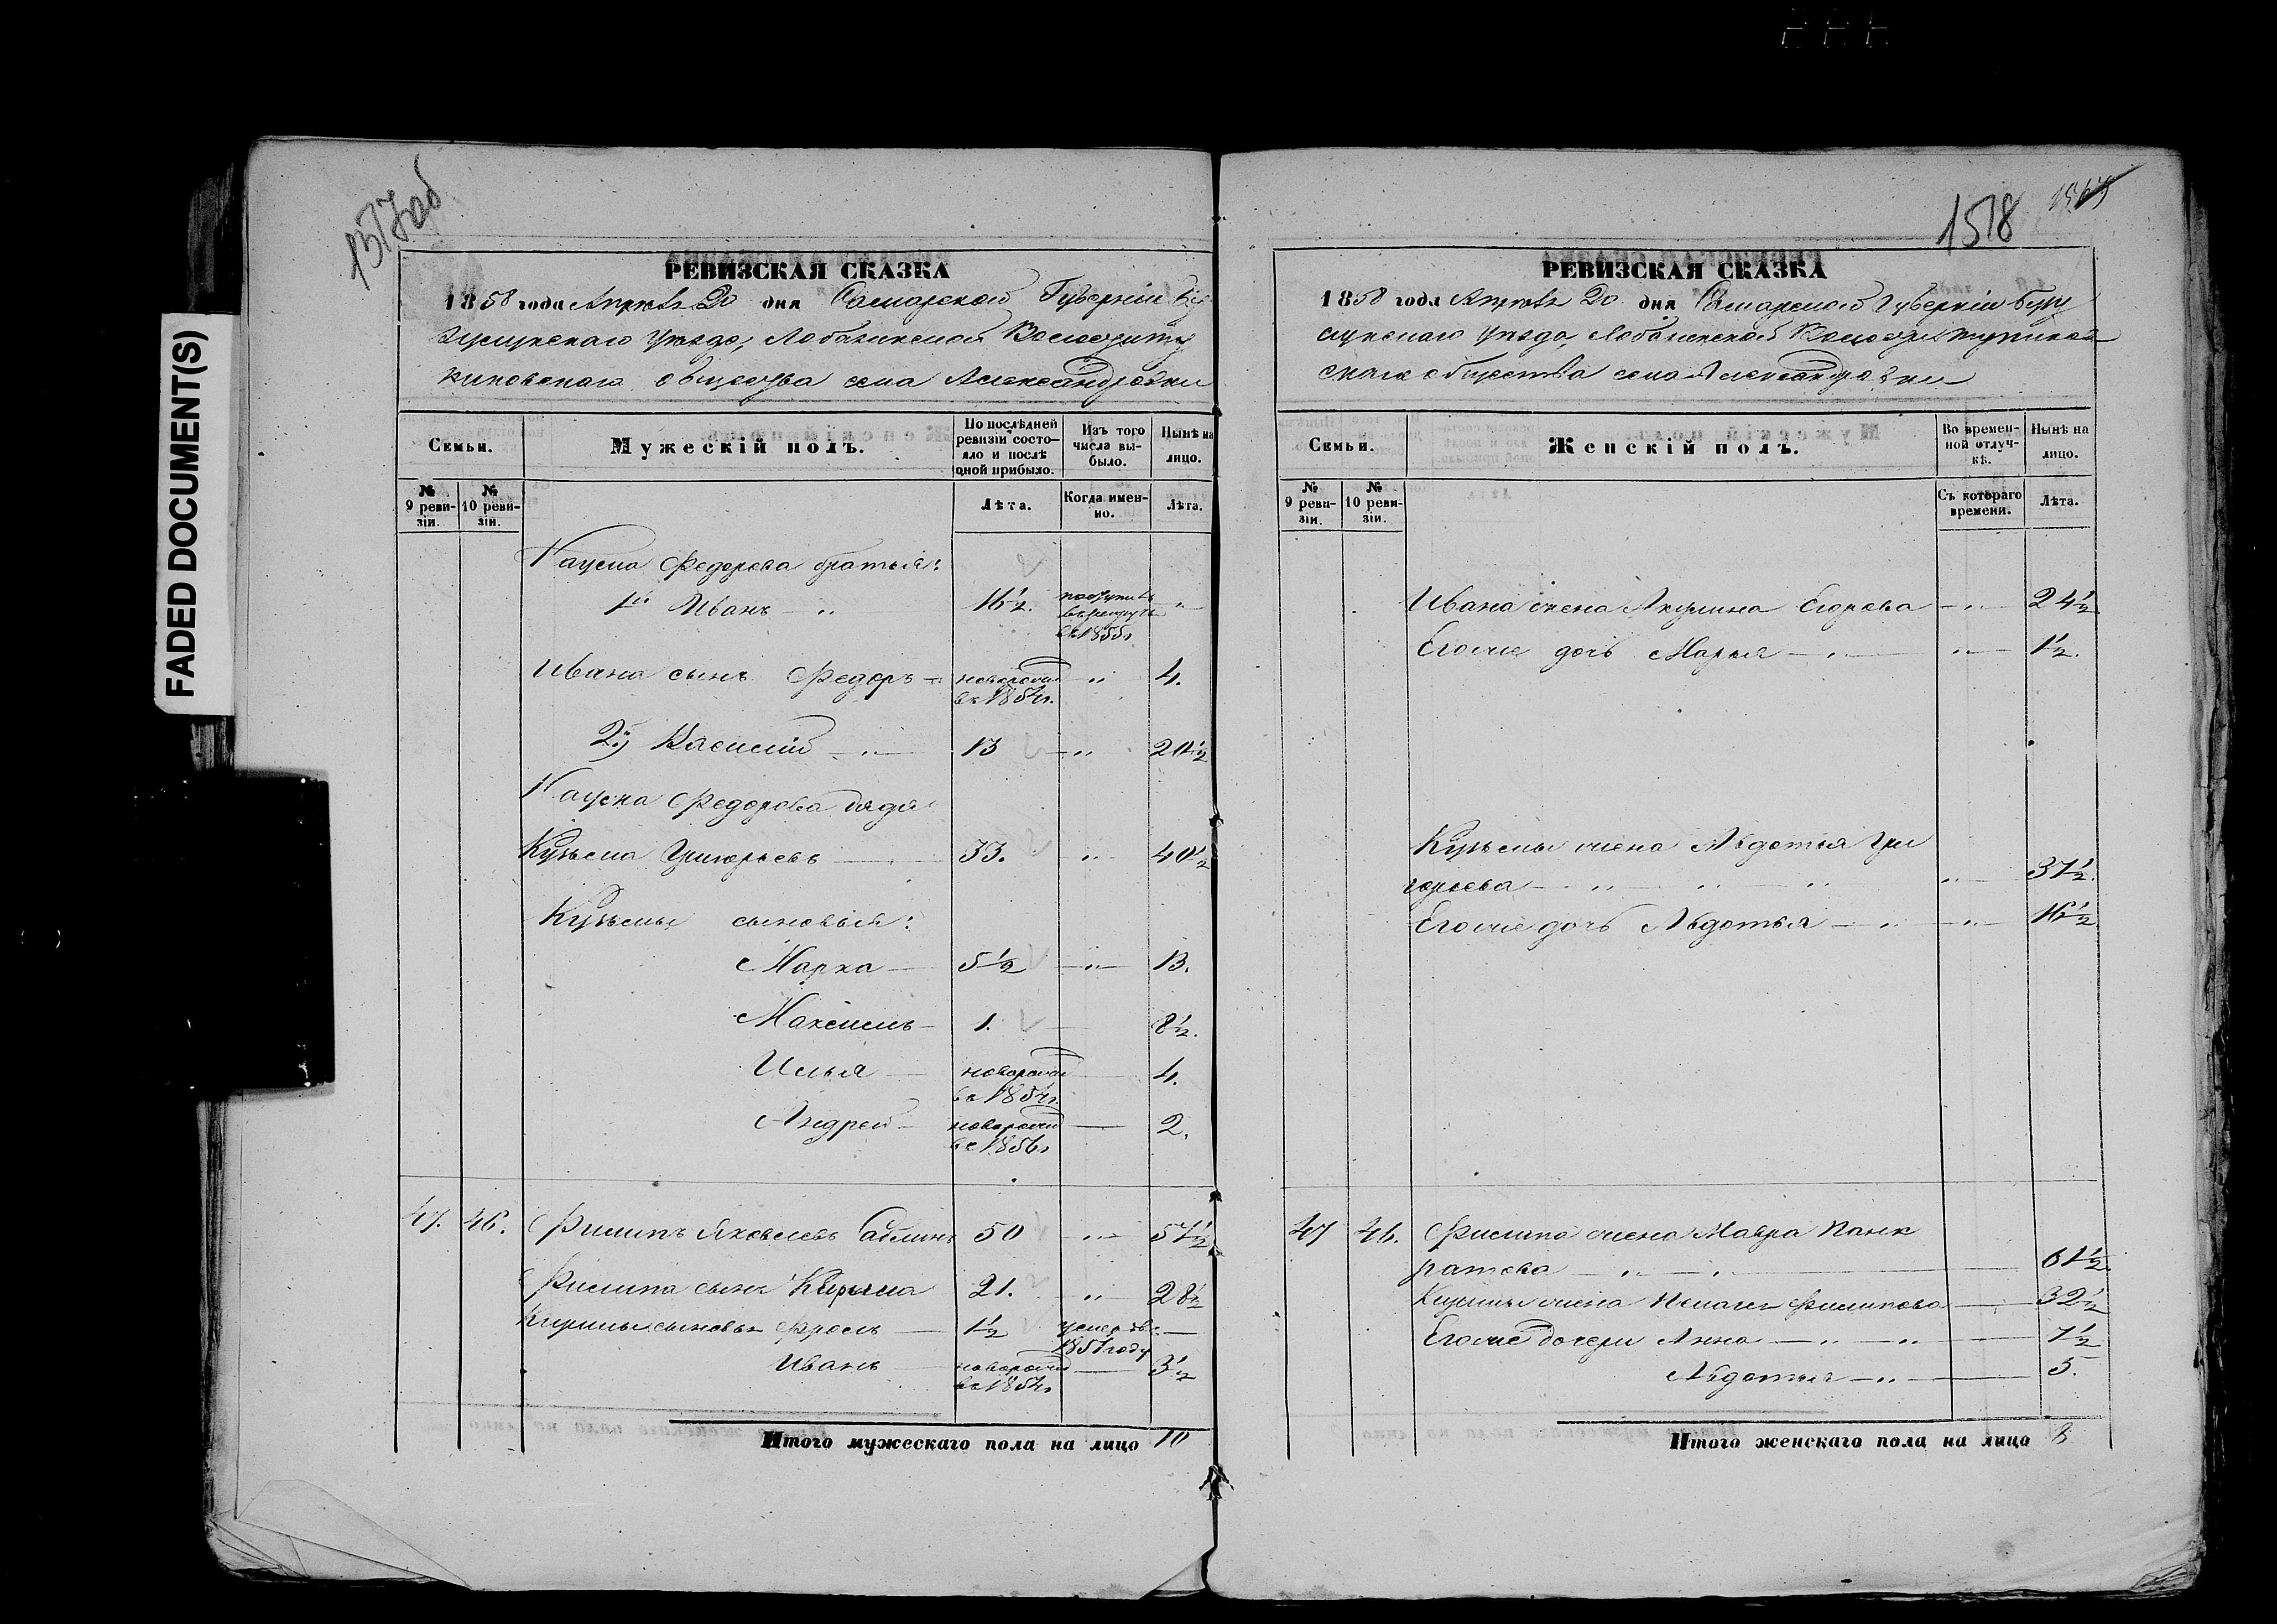 FADED DOCUMENT(S)
1517 об
РЕВИЗСКАЯ СКАЗКА
1858 года Апреля 20 дня Самарской Губерніи Бу
гурусланскаго уезда, Лобазинской Волости
общества села Александровки
Семьи.
Мужескій полъ.
По послѣдней ревизіи состояло и послѣ оной прибыло.
Изъ того числа выбыло.
Нынѣ на лицо.
№ 9 ревизіи.
№ 10 ревизіи.
Лѣта.
Когда именно.
Лѣта.
Федорова братья:
1й Иванъ — " 16½. поступилъ въ рекруты въ 1855г "
Ивана сынъ Федоръ новорожд въ 1854г. " 4.
2й Василій — " 13 " 20½
Федорова дядя
Кузьма Григорьевъ — 33. " 40½
Кузьмы сыновья:
Марка — 5½ " 13.
Максимъ — 1. — 8½.
Илья — новорожд въ 1854г. — 4.
Андрей — новорожд въ 1856г — 2.
47. 46. Филипъ Яковлевъ 50 " 57½
Филипа сынъ Кирила 21. " 28½
Кирилы сыновья Фролъ — 1½ умеръ въ 1851 году —
Иванъ — новорожд въ 1854г — 3½
Итого мужескаго пола на лицо 10
1518
РЕВИЗСКАЯ СКАЗКА
1858 года Апреля 20 дня Самарской Губерніи Бугу
уезда, Лобазинской Волости
общества села Александровки
Семьи.
Женскій полъ.
Во временной отлучкѣ.
Нынѣ на лицо.
№ 9 ревизіи.
№ 10 ревизіи.
Съ котораго времени.
Лѣта.
Ивана жена Акулина Егорова — " — 24½
Его же дочь Марья — " — " — 1½.
Кузьмы жена Авдотья Гри
горьева — " " " — " — 37½.
Его же дочь Авдотья — " — " — 16½
47 46. Филипа жена Мавра Панк
ратова — " — " — 61½.
Кирилы жена Пелагея Филипова — 32½
Его же дочери Анна — " — " — 7½
Авдотья — " — 5.
Итого женскаго пола на лицо 8